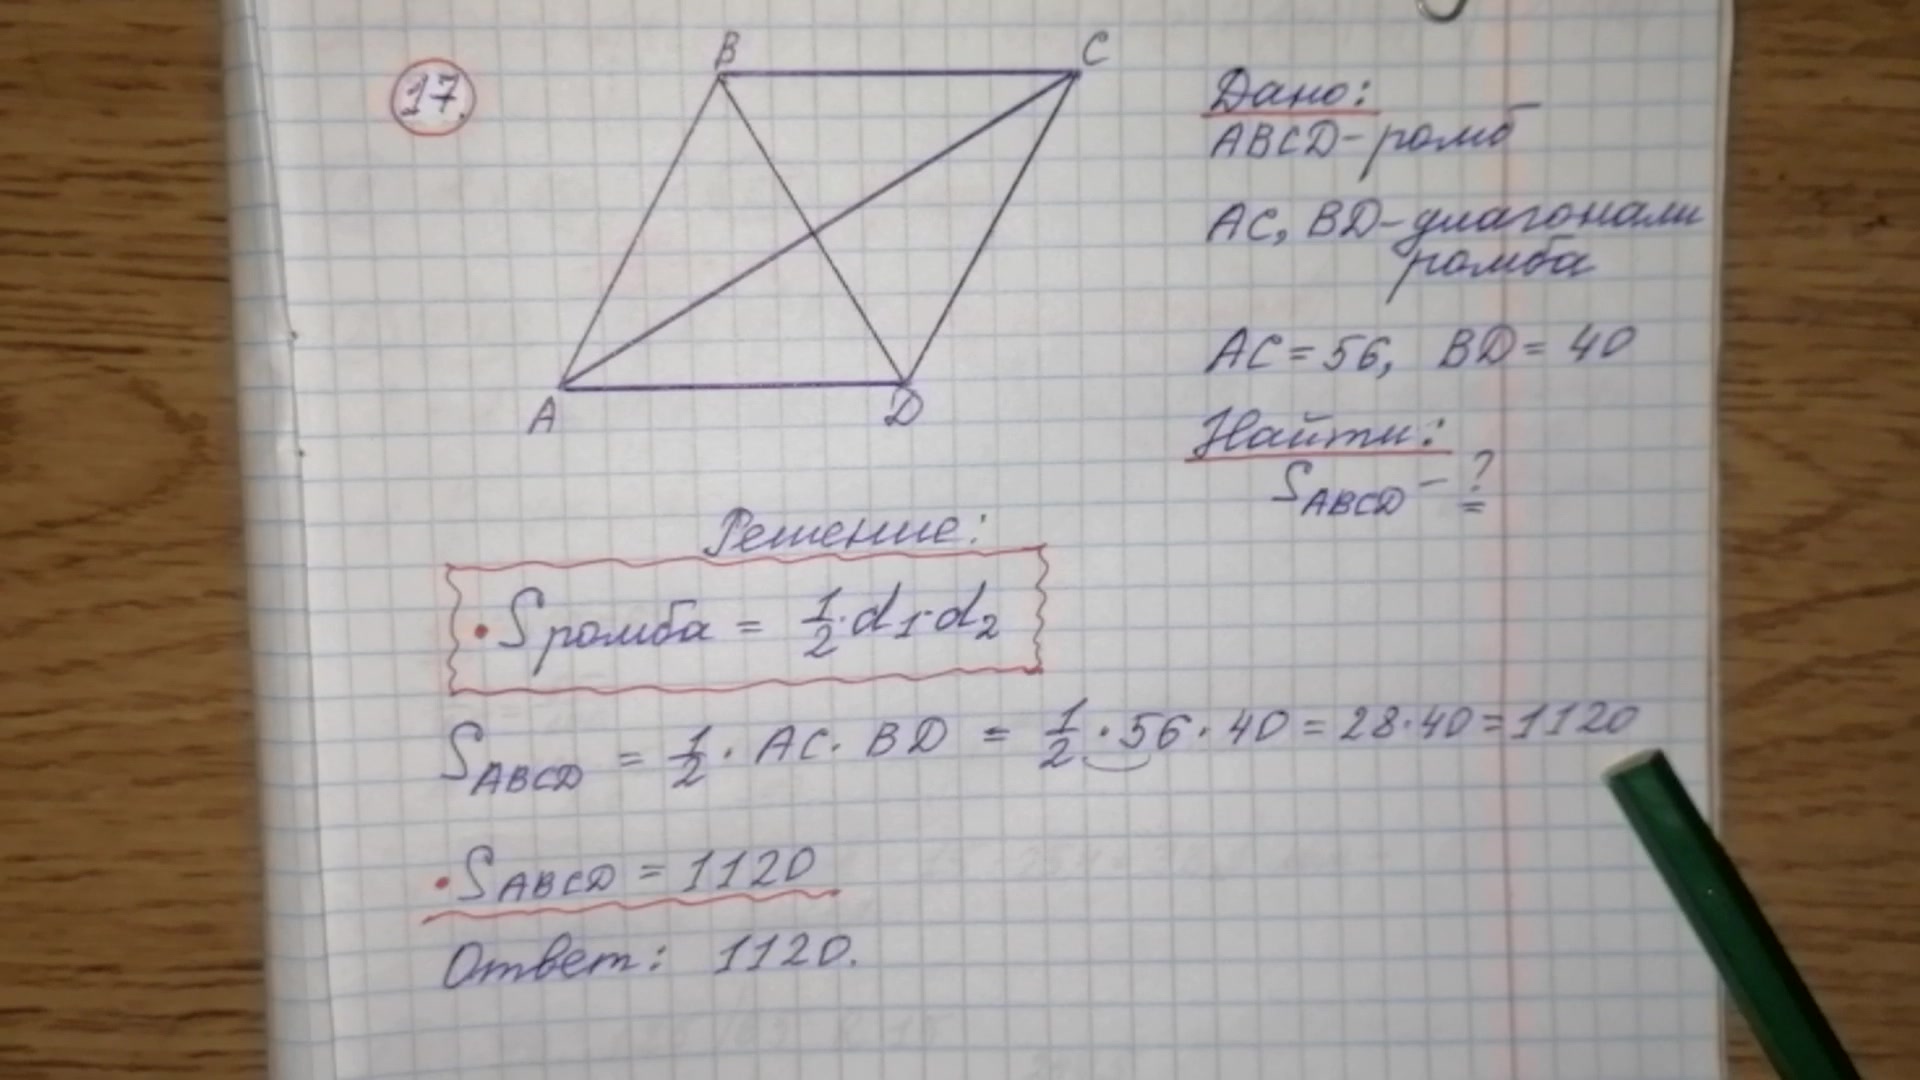 17.
B
C
A
D
Дано:
ABCD - ромб
AC, BD - диагонали
ромба
AC = 56, BD = 40
Найти:
S ABCD - ?
Решение:
• S ромба = 1/2 · d1 · d2
S ABCD = 1/2 · AC · BD = 1/2 · 56 · 40 = 28 · 40 = 1120
• S ABCD = 1120
Ответ: 1120.